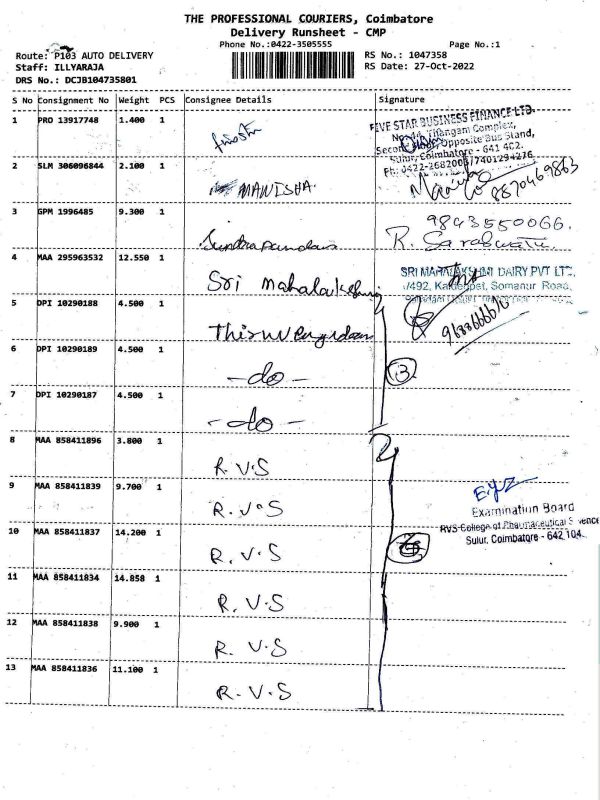 THE PROFESSIONAL COURIERS, Coimbatore
Delivery Runsheet - CMP
Phone No.:0422-3505555
Page No.:1
Route: P103 AUTO DELIVERY
RS No.: 1047358
Staff: ILLYARAJA
RS Date: 27-Oct-2022
DRS No.: DCJB104735801
S No Consignment No Weight PCS Consignee Details Signature
1 PRO 13917748 1.400 1
FIVE STAR BUSINESS FINANCE LTD.
No.44, Thangam Complex,
Second Floor, Opposite Bus Stand,
Sulur, Coimbatore - 641 402.
Ph: 0422-2682005/7401294276
2 SLM 306096844 2.100 1 MANISHA.
8870469863
3 GPM 1996485 9.300 1
9843550066.
R. Saraswathi
4 MAA 295963532 12.550 1 Sri Mahalakshmi
SRI MAHALAKSHMI DAIRY PVT LTD,
Somanur Road,
5 DPI 10290188 4.500 1
6 DPI 10290189 4.500 1 -do-
3
7 DPI 10290187 4.500 1 -do-
8 MAA 858411896 3.800 1 R.V.S
9 MAA 858411839 9.700 1 R.V.S
Examination Board
RVS College of Pharmaceutical Science
Sulur, Coimbatore - 642 104.
10 MAA 858411837 14.200 1 R.V.S
11 MAA 858411834 14.858 1 R.V.S
12 MAA 858411838 9.900 1 R.V.S
13 MAA 858411836 11.100 1 R.V.S